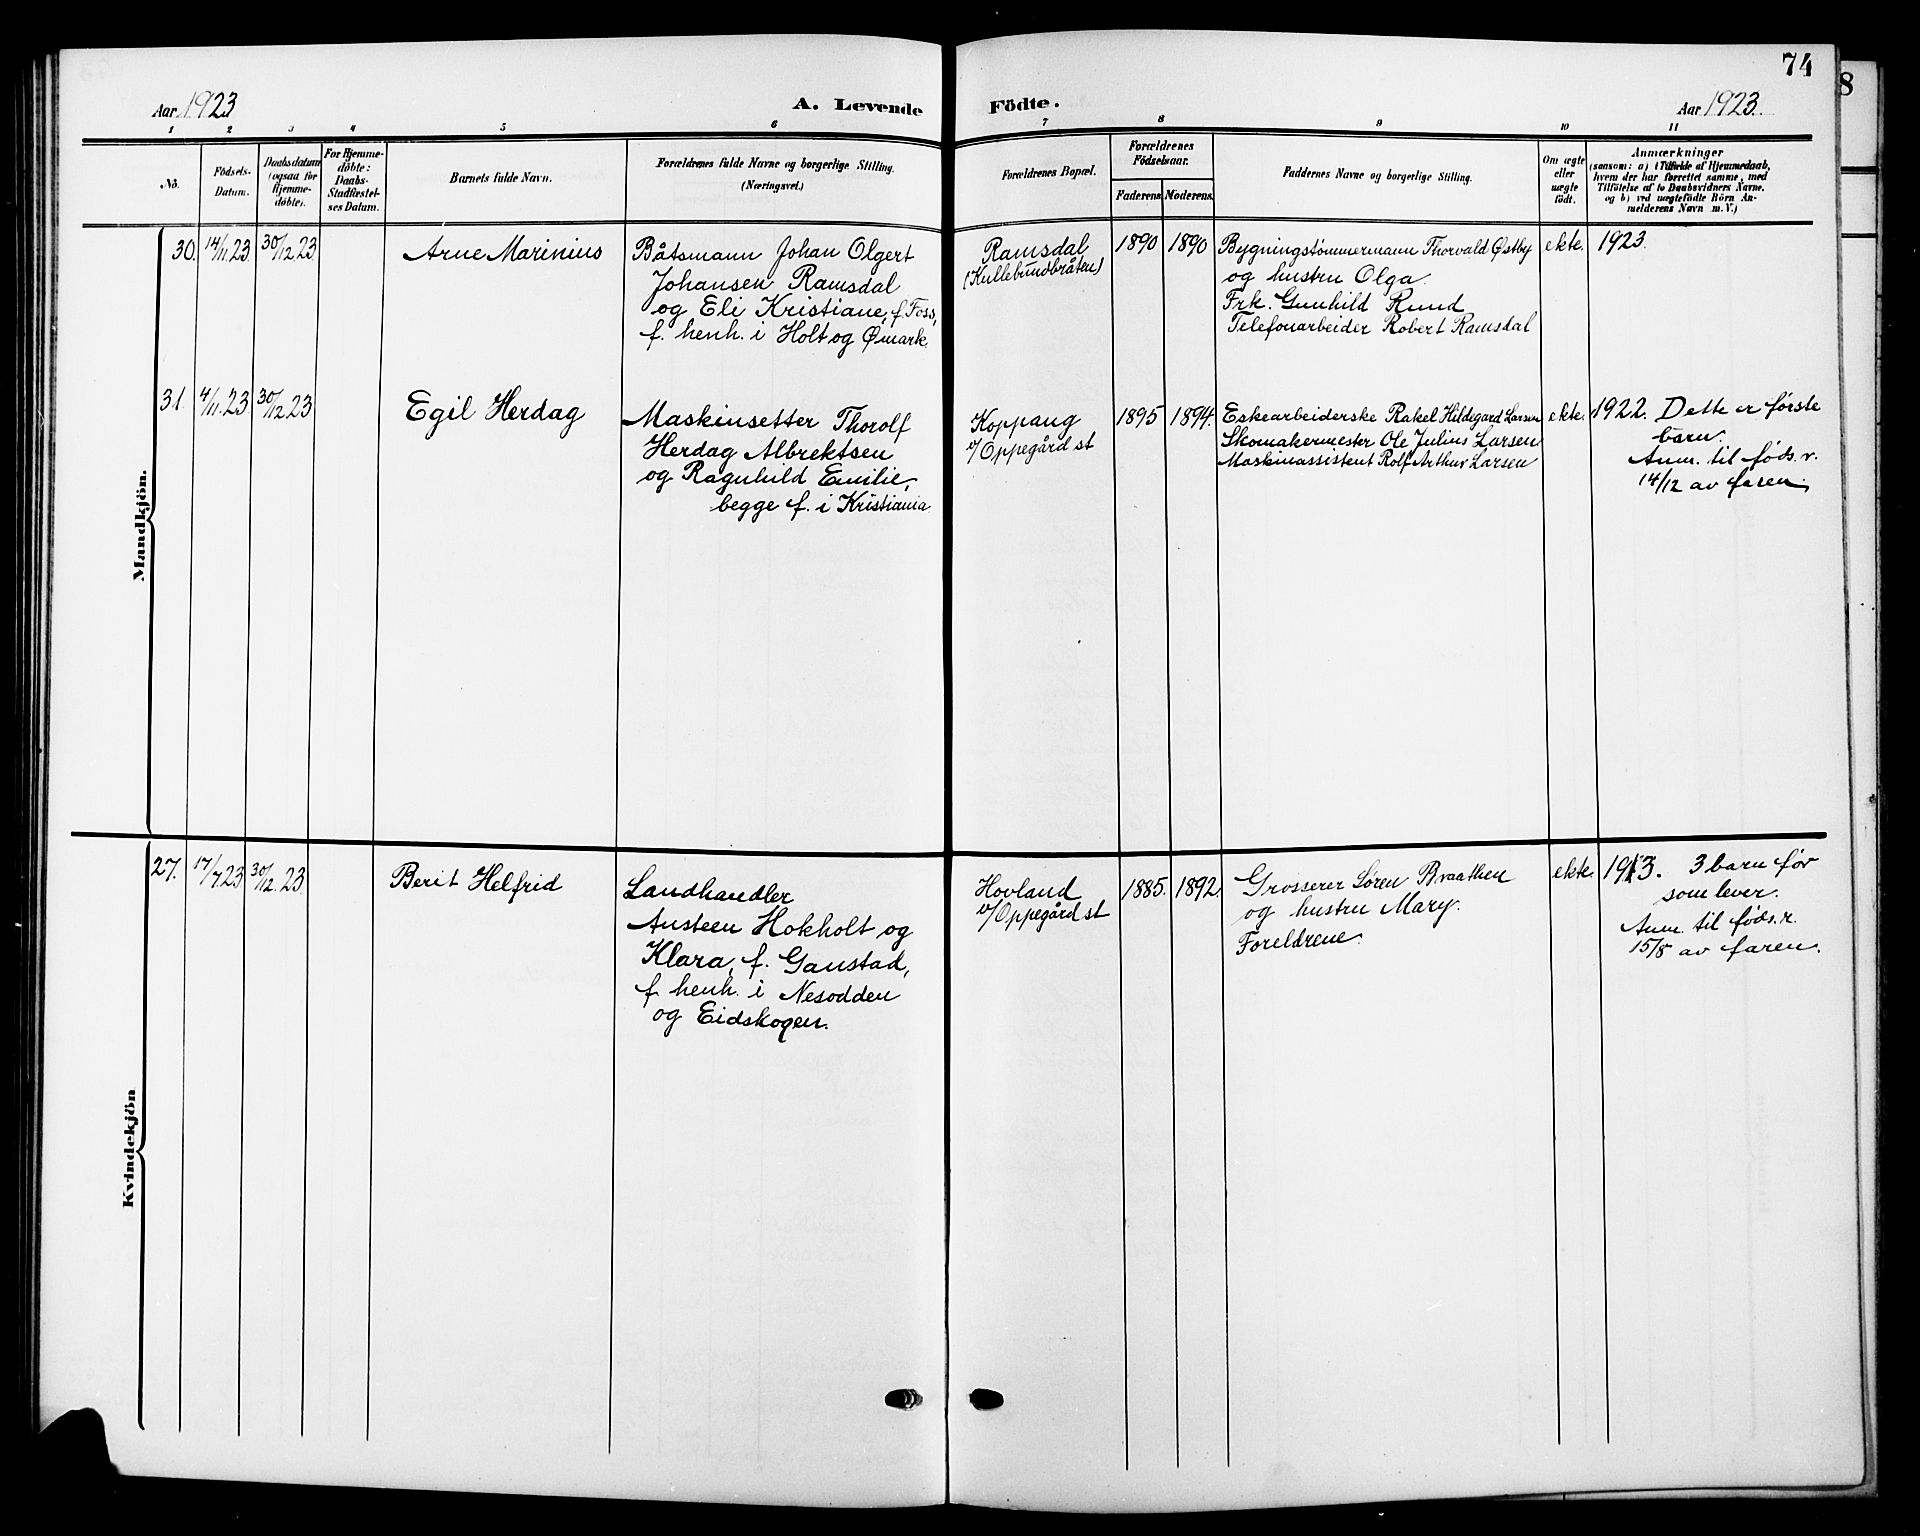 74
8
Aar 1923
A. Levende
Födte.
Aar 1923.
1 2 3 4 5 6 7 8 9 10 11
No.
Födsels-
Datum.
Daabsdatum
(ogsaa for
Hjemme-
døbte).
For Hjemme-
döbte:
Daabs-
Stadfæstel-
ses Datum.
Barnets fulde Navn.
Forældrenes fulde Navne og borgerlige Stilling.
(Næringsvei.)
Forældrenes Bopæl.
Forældrenes
Födselsaar.
Faderens Moderens.
Faddernes Navne og borgerlige Stilling.
Om ægte
eller
uægte
födt.
Anmærkninger
(saasom: a) i Tilfælde af Hjemmedaab,
hvem der har forrettet samme, med
Tilföielse af to Daabsvidners Navne.
og b) ved uægtefödte Börn An-
melderens Navn m. V.)
Mandkjön.
30. 14/11 23. 30/12 23
Arne Marinius
Båtsmann Johan Olgert
Johansen Ramsdal
og Eli Kristiane, f. Foss,
f. henh. i Holt og Ømark.
Ramsdal
(Kullebundbråten)
1890 1890
Bygningstømmermann Thorvald Østby
og hustru Olga.
Frk. Gunhild Rund
Telefonarbeider Robert Ramsdal
ekte.
1923.
31. 4/11. 23 30/12 23
Egil Herdag
Maskinsetter Thorolf
Herdag Albrektsen
og Ragnhild Emilie,
begge f. i Kristiania
Koppang
v/Oppegård st
1895 1894.
Eskearbeiderske Rakel Hildegard Larsen
Skomakermester Ole Julius Larsen
Maskinassistent Rolf Arthur Larsen
ekte.
1922. Dette er første
barn.
Anm. til føds. r.
14/12 av faren.
Kvindekjön
27. 17/7 23 30/12. 23
Berit Helfrid
Landhandler
Austeen Hokholt og
Klara, f. Gaustad,
f. henh. i Nesodden
og Eidskogen.
Hovland
v/Oppegård st
1885. 1892.
Grosserer Søren Braathen
og hustru Mary.
Foreldrene.
ekte.
1913. 3 barn før
som lever.
Anm. til føds. r.
15/8 av faren.